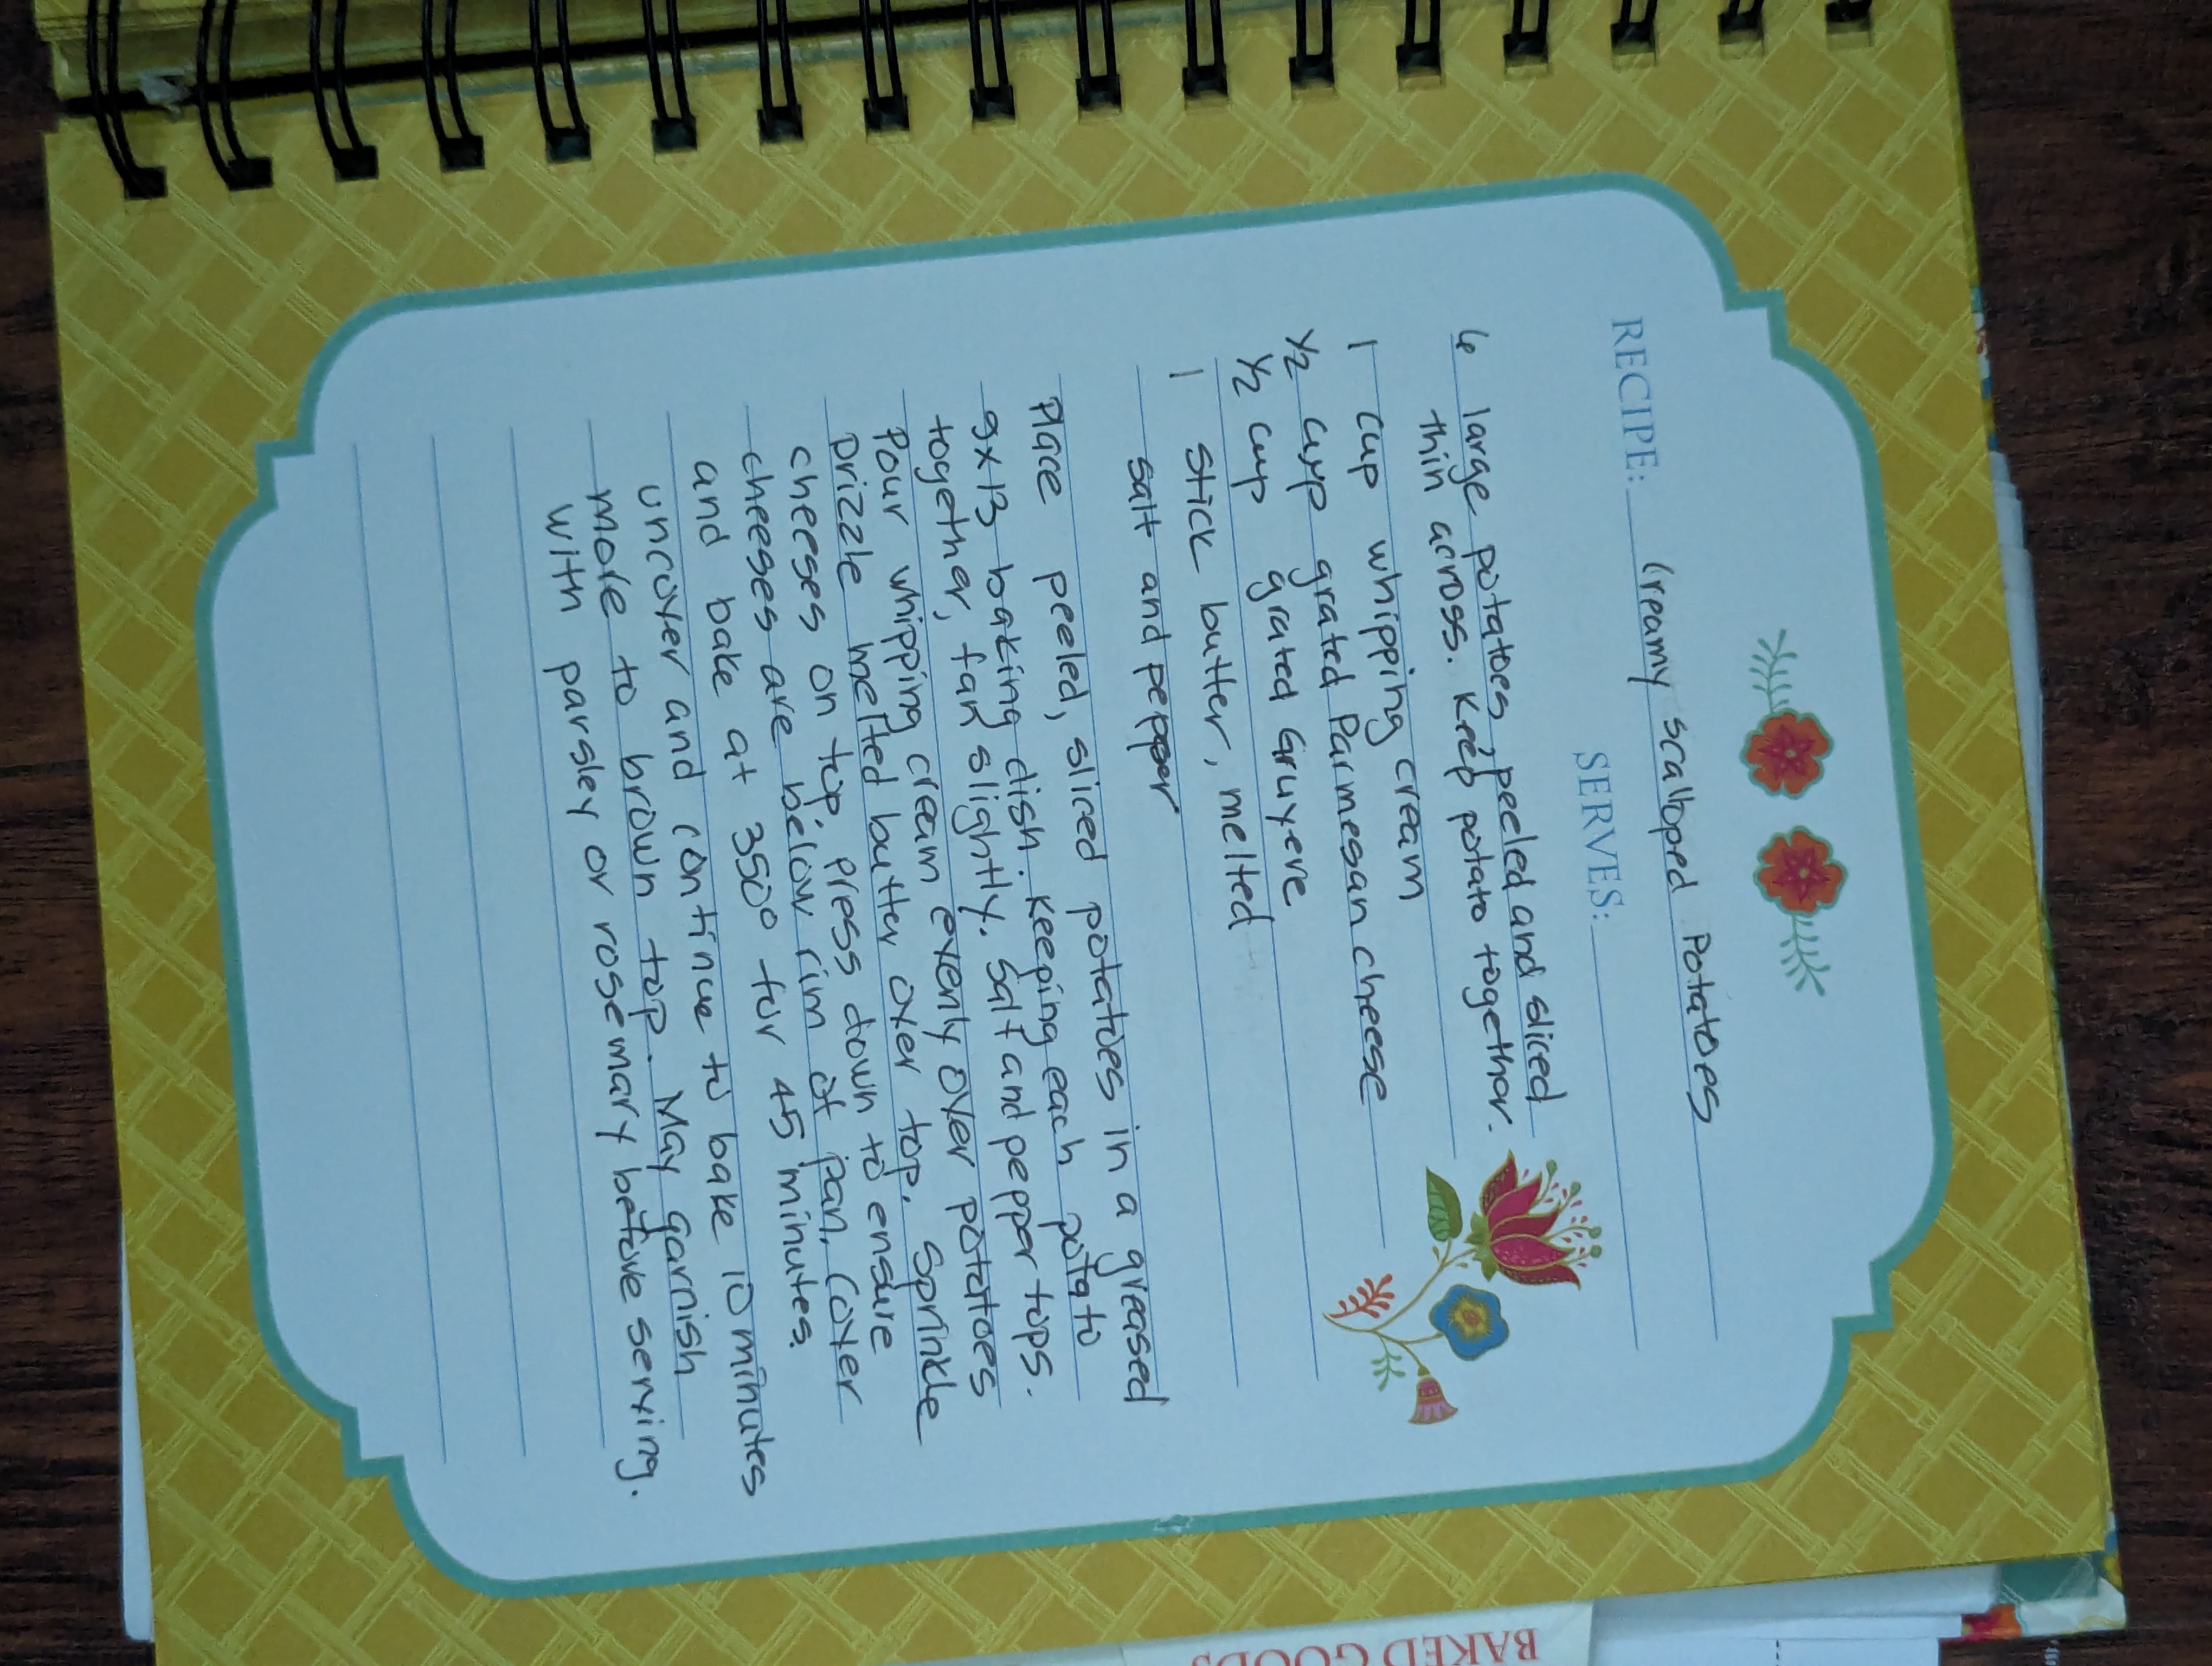 RECIPE: Creamy Scalloped Potatoes
SERVES:
6 large potatoes, peeled and sliced
thin across. Keep potato together.
1 cup whipping cream
1/2 cup grated Parmesan cheese
1/2 cup grated Gruyere
1 stick butter, melted
salt and pepper
Place peeled, sliced potatoes in a greased
9x13 baking dish. Keeping each potato
together, fan slightly. Salt and pepper tops.
Pour whipping cream evenly over potatoes
Drizzle melted butter over top. Sprinkle
cheeses on top. Press down to ensure
cheeses are below rim of pan. Cover
and bake at 350° for 45 minutes.
Uncover and continue to bake 10 minutes
more to brown top. May garnish
with parsley or rosemary before serving.
BAKED GOODS